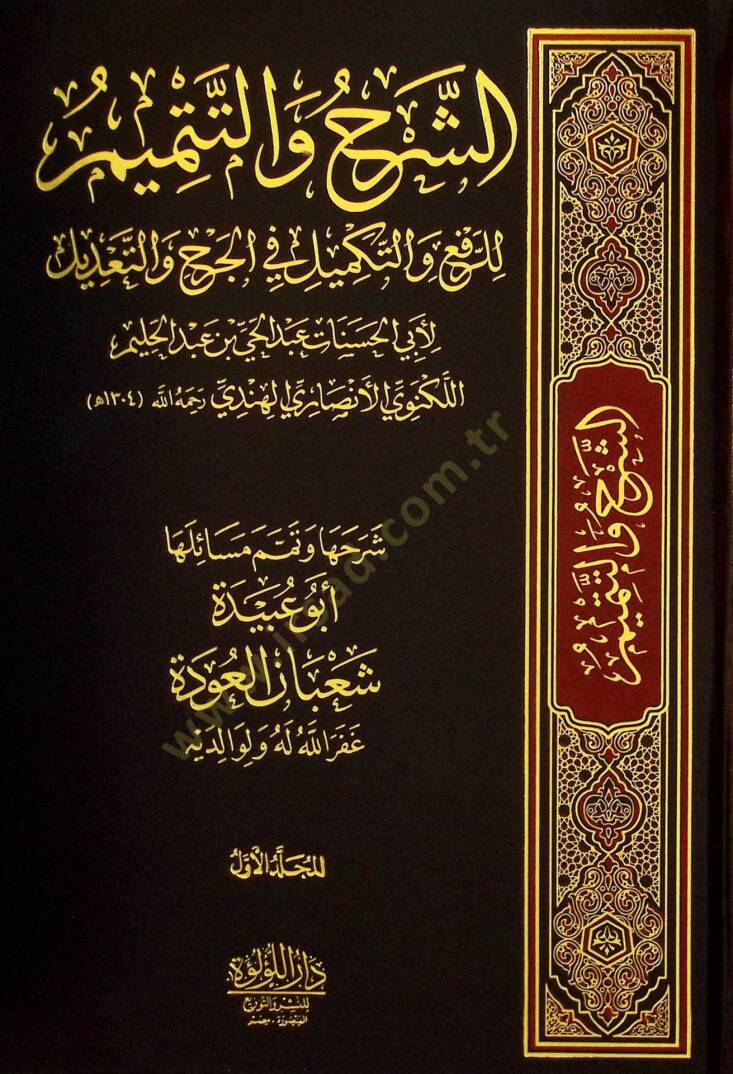 الشَّرْحُ وَالتَّتْمِيمُ
لِلرَّفْعِ وَالتَّكْمِيلِ فِي الْجَرْحِ وَالتَّعْدِيلِ
لِأَبِي الْحَسَنَاتِ عَبْدِ الْحَيِّ بْنِ عَبْدِ الْحَلِيمِ
اللَّكْنَوِيِّ الْأَنْصَارِيِّ الْهِنْدِيِّ رَحِمَهُ اللَّه (١٣٠٤هـ)
شَرَحَهَا وَتَمَّمَ مَسَائِلَهَا
أَبُو عُبَيْدَة
شَعْبَان الْعُودَة
غَفَرَ اللَّهُ لَهُ وَلِوَالِدَيْهِ
الْمُجَلَّدُ الْأَوَّلُ
دَارُ اللُّؤْلُؤَة
للنشر والتوزيع
المنصورة - مصر
الشَّرْحُ وَالتَّتْمِيمُ